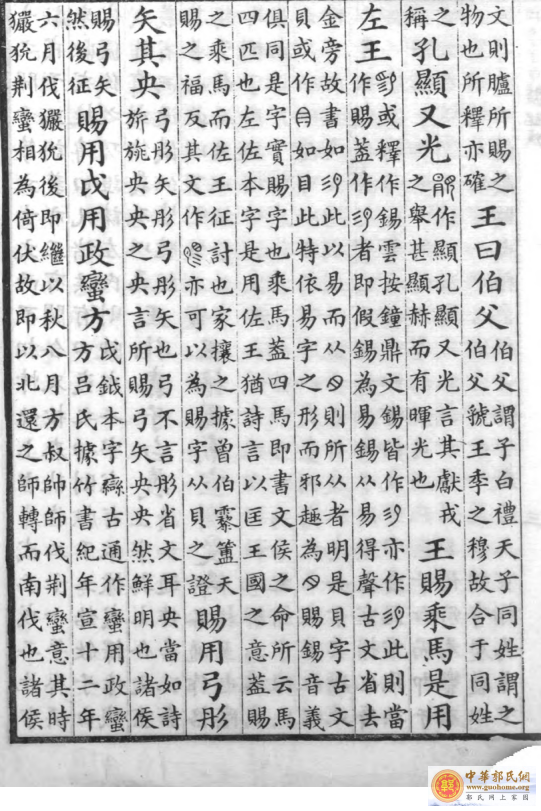 文則臚所賜之
物也所釋亦確
王曰伯父
伯父謂子白禮天子同姓謂之
伯父虢王季之穆故合于同姓
之
稱
孔顯又光
作顯孔顯又光言其獻戎
之舉甚顯赫而有暉光也
王賜乘馬是用
左王
或釋作錫雲按鐘鼎文錫皆作亦作此則當
作賜蓋作者即假錫為易錫从易得聲古文省去
金旁故書如此以易而从則所从者明是貝字古文
貝或作如目此特依易字之形而邪趣為賜錫音義
俱同是字實賜字也乘馬蓋四馬即書文侯之命所云馬
四匹也左佐本字是用佐王猶詩言以匡王國之意蓋賜
之乘馬而佐王征討也家攘之據曾伯霥簠天
賜之福反其文作亦可以為賜字从貝之證
賜用弓彤
矢其央
弓彤矢彤弓彤矢也弓不言彤省文耳央當如詩
旂旐央央之央言所賜弓矢央央然鮮明也諸侯
賜弓矢
然後征
賜用戉用政蠻方
戉鉞本字䜌古通作蠻用政蠻
方呂氏據竹書紀年宣十二年
六月伐玁狁後即繼以秋八月方叔帥師伐荊蠻意其時
玁狁荊蠻相為倚伏故即以北還之師轉而南伐也諸侯
中華郭氏網
www.guohome.org
郭氏網上家園